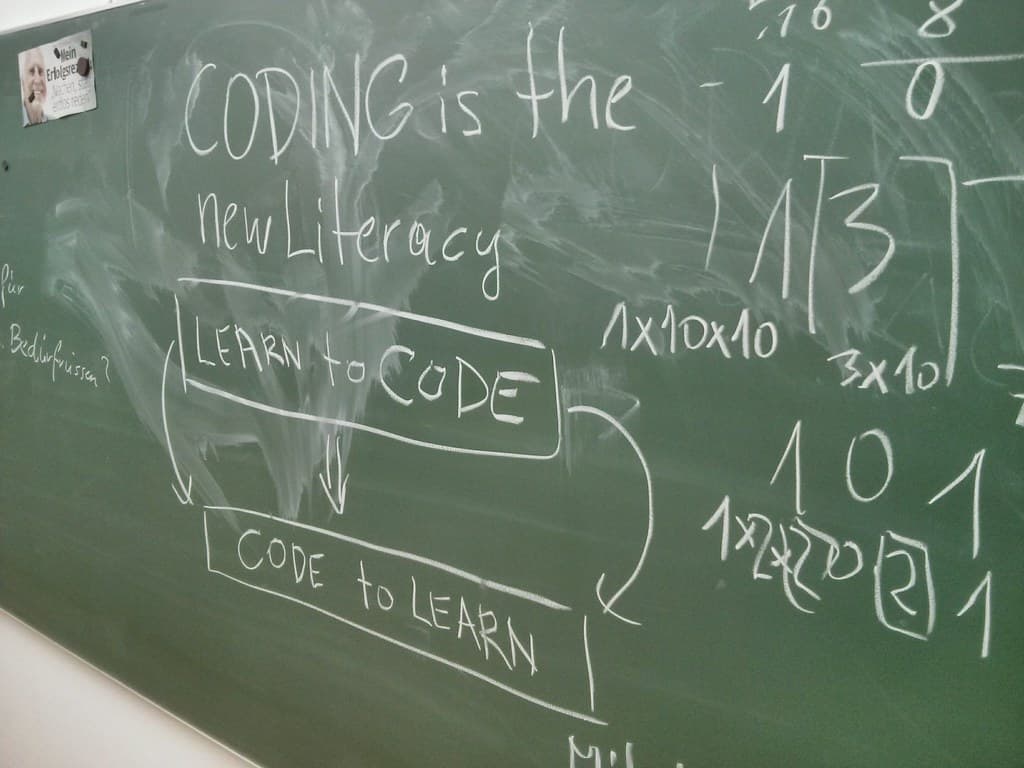 Mein
Erfolgsrezept
CODING is the
new Literacy
LEARN to CODE
CODE to LEARN
für
Bedürfnissen?
16 8
- 1 0
1 1 3
1x10x10
3x10
1 0 1
1x2x2 0 2 1